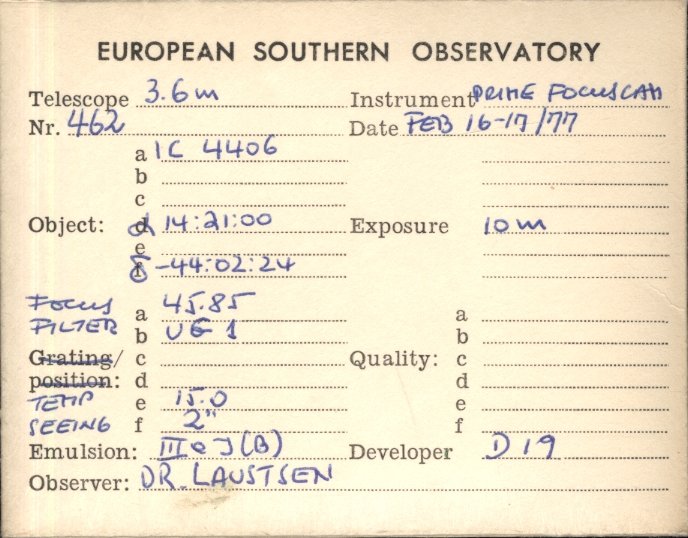 EUROPEAN SOUTHERN OBSERVATORY
Telescope 3.6m Instrument PRIME FOCUSCAM
Nr. 462 Date FEB 16-17/77
a IC 4406
b
c
Object: d α 14:21:00 Exposure 10m
e
f δ -44:02:24
FOCUS a 45.85 a
FILTER b UG 1 b
Grating/ c Quality: c
position: d d
TEMP e 15.0 e
SEEING f 2" f
Emulsion: III a J (B) Developer D19
Observer: DR. LAUSTSEN